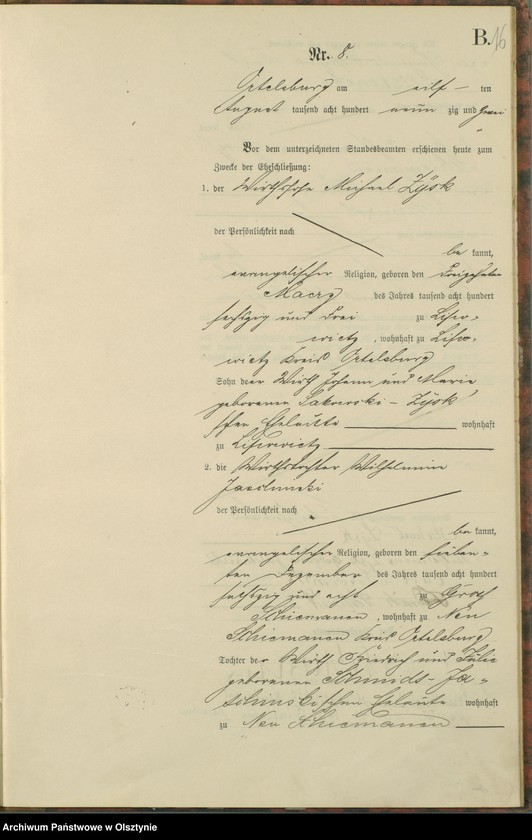 B. 16
Nr. 8.
Ortelsburg am eilf ten
August tausend acht hundert neun zig und zwei
Vor dem unterzeichneten Standesbeamten erschienen heute zum
Zwecke der Eheschließung:
1. der Wirthssohn Michael Zysk
der Persönlichkeit nach
be kannt,
evangelischer Religion, geboren den dreizehnten
Maerz des Jahres tausend acht hundert
sechszig und drei zu Lisso-
wietz, wohnhaft zu Lisso-
wietz Kreis Ortelsburg
Sohn der Wirth Johann und Marie
geborenen Sakowski - Zysk
schen Eheleute wohnhaft
zu
2. die Wirthstochter Wilhelmine
der Persönlichkeit nach
be kannt,
evangelischer Religion, geboren den sieben-
ten Dezember des Jahres tausend acht hundert
sechszig und acht zu Gross
Schiemanen, wohnhaft zu Neu
Schiemanen Kreis Ortelsburg
Tochter der Wirth Friedrich und Julie
geborenen Schmidt - Ja-
schinskischen Eheleute wohnhaft
zu Neu Schiemanen
Archiwum Państwowe w Olsztynie